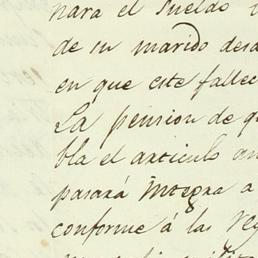 nara el sueldo
de su marido desd
en que este fallec
La pension de q
bla el articulo an
pasará integra a
conforme á las reg